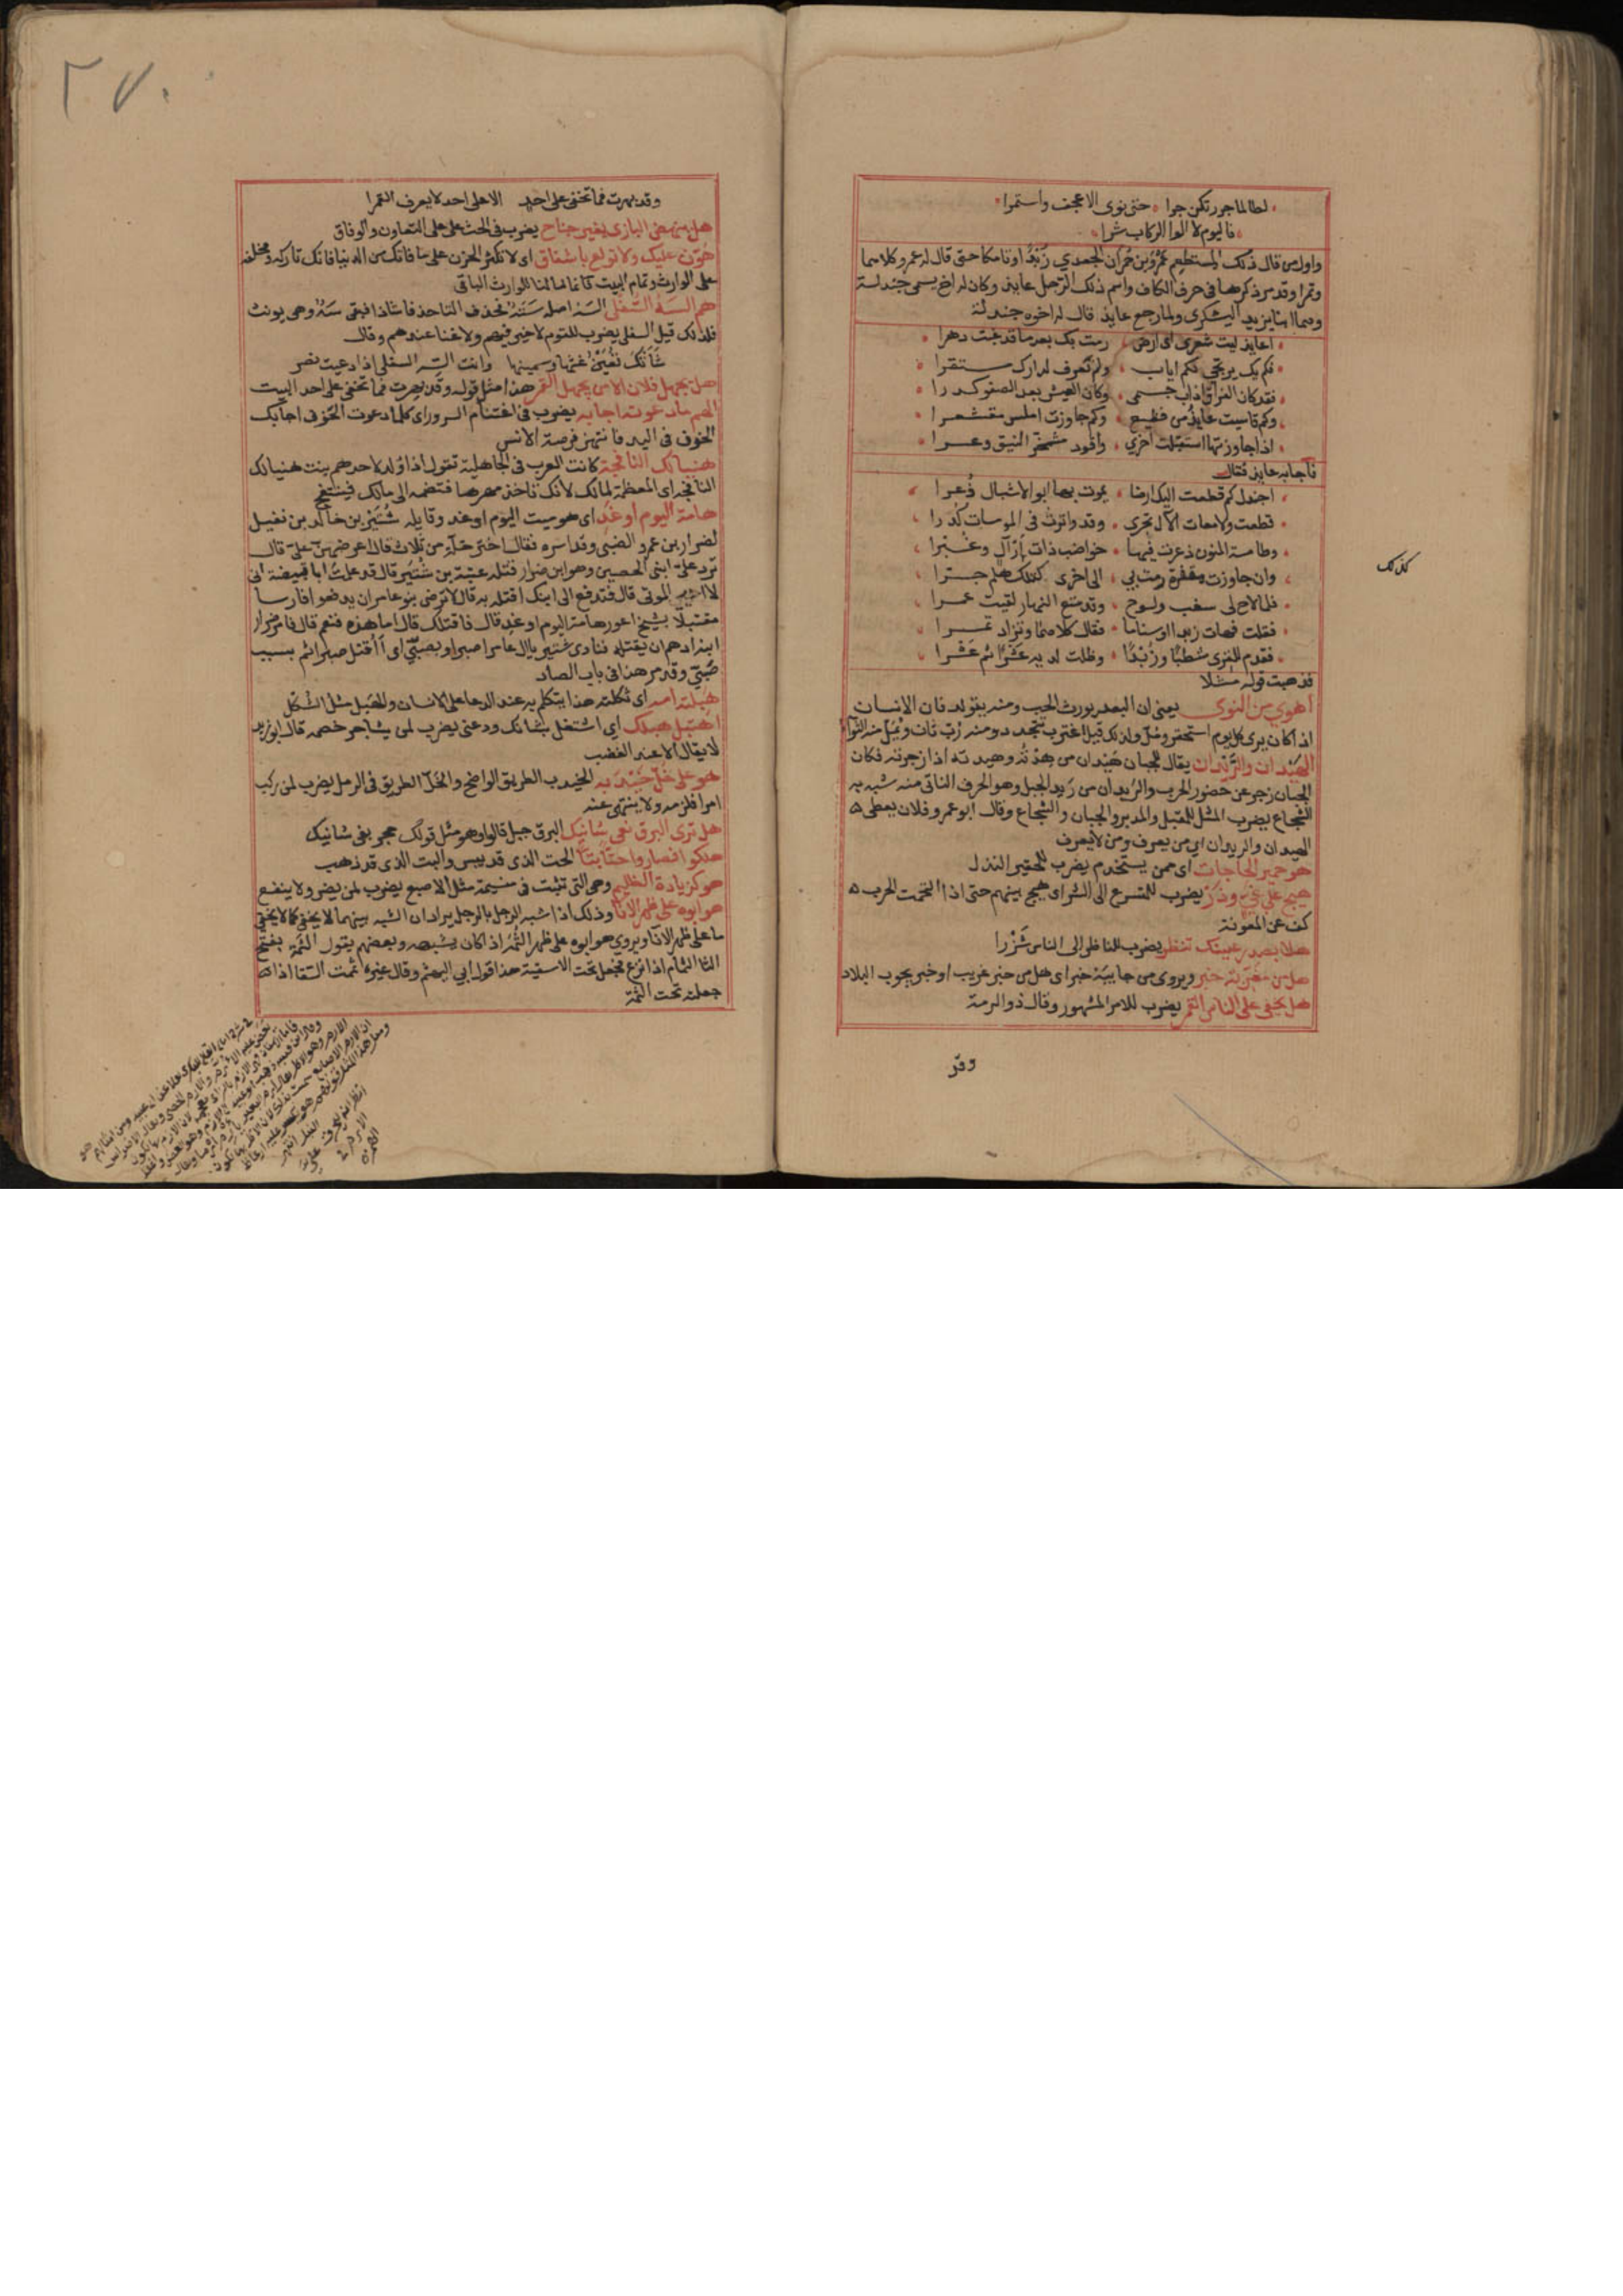 لطالما جررتكن جرا حتى نوى الاعجف واستمرا
فاليوم لا الوا الركاب شرا
واول من قال ذلك المستطعم عمرو بن حمران الجعدي زُبْدًا او تامكا حتى قال له عمرو كلاهما
وتمرا وقد مر ذكرهما فى حرف الكاف واسم ذلك الرجل عايذ وكان له اخ يسمى جندلة
وهما ابنا يزيد اليشكرى ولما رجع عايذ قال له اخوه جندلة
اعايذ ليت شعرى اى ارض رمت بك بعد ما قد غبت دهرا
فلم يك يرتجى لكم اياب ولم نعرف لدارك مستقرا
فقد كان الفراق اذاب جسمى وكان العيش بعد الصفو كدرا
وكم قاسيت عايذ من فظيع وكم جاوزت املس مقشعرا
اذا جاوزتها استقبلت اخرى واقود مشمخر النيق وعرا
فاجابه عايذ فقال
اجندل كم قطعت اليك ارضا يموت بها ابو الاشبال ذُعرا
قطعت ولامعات الآل تجرى وقد واترت فى الموسات كُدرا
وطامسة المتون ذعرت فيها خواضب ذات ارآل وغبرا
وان جاوزت مقفرة رمت بي الى اخرى كتلك هلم جرا
فلما لاح لى سغب ولوح وقد متع النهار لقيت عمرا
فقلت فهات زبدا او سناما فقال كلاهما وتزاد تمرا
فقدم للقرى شطبًا وزُبْدًا وظلت لديه عشرا ثم عشرا
فذهبت قوله مثلا
كذلك
اهوي من النوى يعنى ان البعد يورث الحب ومنه يتولد فان الانسان
اذا كان يرى كل يوم استحقر ومل ولذلك قيل اغترب تتجدد ومنه رُبّ ثان ويُمَلّ منه الثواء
الهَيْدان والرَّيْدان يقال للجبان هَيْدان من هِدْتُه وهيدته اذا زجرته فكان
الجبان زجر عن حضور الحرب والريدان من رَيد الجبل وهو الحرف الناتى منه شبه به
الشجاع يضرب المثل للمقبل والمدبر والجبان والشجاع وقال ابو عمرو فلان يعطى
الهيدان والريدان اي من يعرف ومن لا يعرف
هو حمير الحاجات اى ممن يستخدم يضرب للحقير النذل
هيج على غيّ وذَرْ يضرب للمتسرع الى الشر اى هيج بينهم حتى اذا التحمت الحرب
كف عن المعونة
هلا بصدر عينك تنظر يضرب للناظر الى الناس شَزْرا
هل من مُغَرِّبة خبر ويروى من جايبة خبر اى هل من خبر غريب او خبر يجوب البلاد
هل يخفى على الناس القمر يضرب للامر المشهور وقال ذو الرمة
وقد
٢٧٠
وقد بهرت فما تخفى على احد الا على احد لا يعرف القمرا
هل ينهض البازى بغير جناح يضرب فى الحث على التعاون والوفاق
هَوِّن عليك ولا تولع باشفاق اى لا تكثر الحزن على ما فاتك من الدنيا فانك تاركه ومخلفه
على الوارث وتمام البيت كانما مالنا للوارث الباقى
هم السَّهُ السُّفلى السه اصله سَتَهٌ فحذف التا حذفا شاذا فبقى سَهٌ وهى يونث
فلذلك قيل السفلى يضرب للقوم لا خير فيهم ولا غنا عندهم وقال
شَأَتك قُعَيْنٌ غثها وسمينها وانت السه السفلى اذا دعيت نصر
هل يجهل فلان الا من يجهل القمر هذا مثل قوله وقد بهرت فما تخفى على احد البيت
الهم ما دعوته اجابه يضرب فى اغتنام السرور اى كلما دعوت الحزن اجابك
الحزن فى اليد فانتهز فرصة الانس
هنيا لك النافجة كانت العرب فى الجاهلية تقول اذا وُلد لاحدهم بنت هنيا لك
النافجة اى المعظمة لمالك لانك تاخذ مهرها فتضمه الى مالك فينتفج
هامة اليوم او غَد اى هو ميت اليوم او غد وقايله شُتَيْر بن خالد بن نفيل
لضرار بن عمرو الضبى وقد اسره فقال اختر خلة من ثلاث قال اعرضهن علىّ قال
ترد على ابنى الحصين وهو ابن ضرار قتله عتبة بن شتير قال قد علمت ابا قبيصة انى
لا احيى الموتى قال فتدفع الى ابنك اقتله به قال لا ترضى بنو عامر ان يدفعوا فارسا
مقتبلا بشيخ اعور هامة اليوم او غد قال فاقتلك قال اما هذه فنعم قال فامر ضرار
ابنه ادهم ان يقتله فنادى شتير يال عامر اصبرا وبضبى اى أأقتل صبرا ثم بسبب
ضبى وقد مر هذا فى باب الصاد
هَبِلته امه اى ثكلته هذا يتكلم به عند الدعا على الانسان والهَبَل مثل الثكل
اهتبل هبلك اي اشتغل بشانك ودعنى يضرب لمن يشاجر خصمه قال ابو زيد
لا يقال الا عند الغضب
هو على خَلّ خَيْدَبه الخيدب الطريق الواضح والخَلّ الطريق فى الرمل يضرب لمن ركب
امرا فلزمه ولا ينتهى عنه
هل ترى البرق بفى شانيك البرق جبل قالوا وهو مثل قولك حجر بفى شانيك
هلكوا فصاروا حتا بتا الحت الذى قد يبس والبت الذى قد ذهب
هو كزيادة الظليم وهى التى تنبت فى منسمه مثل الاصبع يضرب لمن يضر ولا ينفع
هو ابوه على ظهر الانا وذلك اذا شبه الرجل بالرجل يراد ان الشبه بينهما لا يخفى كما لا يخفى
ما على ظهر الانا ويروى هو ابوه على ظهر الثُّمّة اذا كان يشبهه وبعضهم يقول الثَّمّة بفتح
الثا الثمام اذا نزع فجعل تحت الاسقية هذا قول ابي الهيثم وقال غيره ثممت السقا اذا
جعلته تحت الثمة